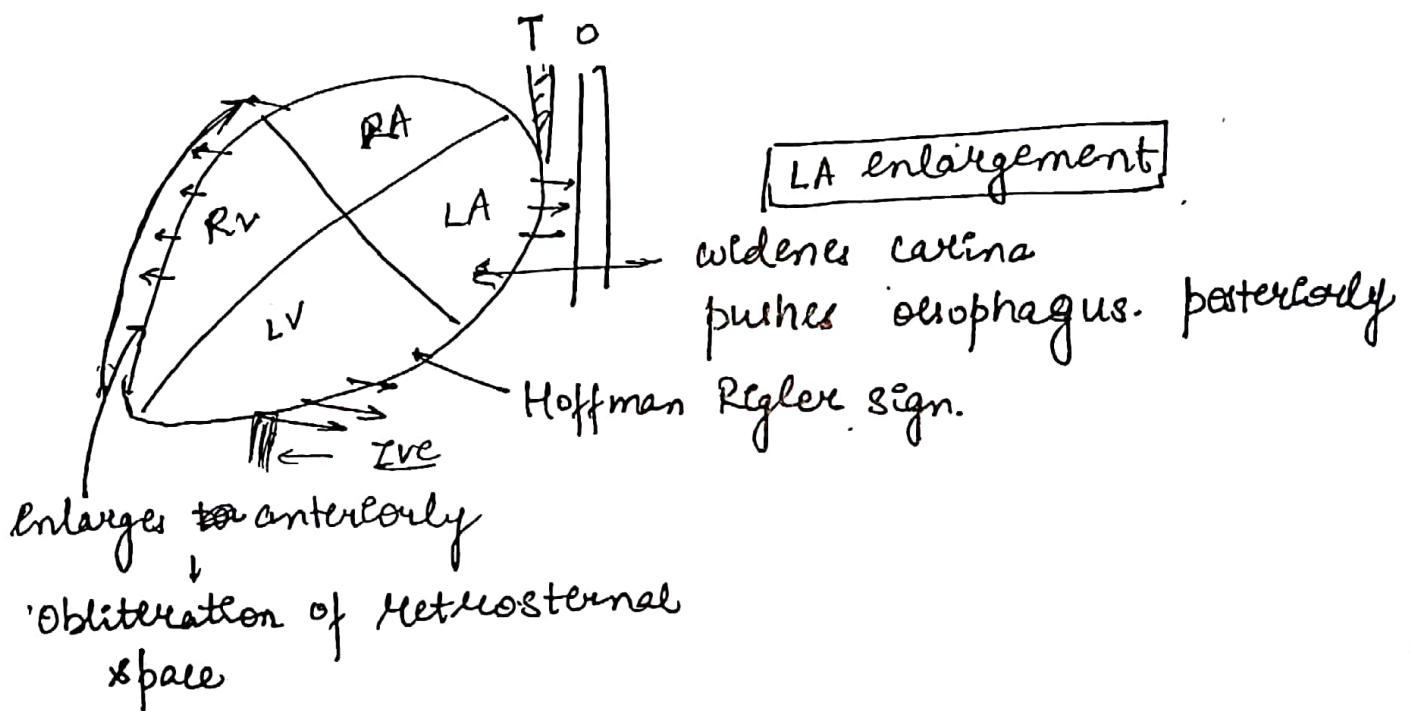 T O
RA
LA enlargement
RV
LA
widenes carina
pushes oesophagus. posteriorly
LV
Hoffman Rigler sign.
IVC
Enlarges anteriorly
↓
Obliteration of retrosternal
space